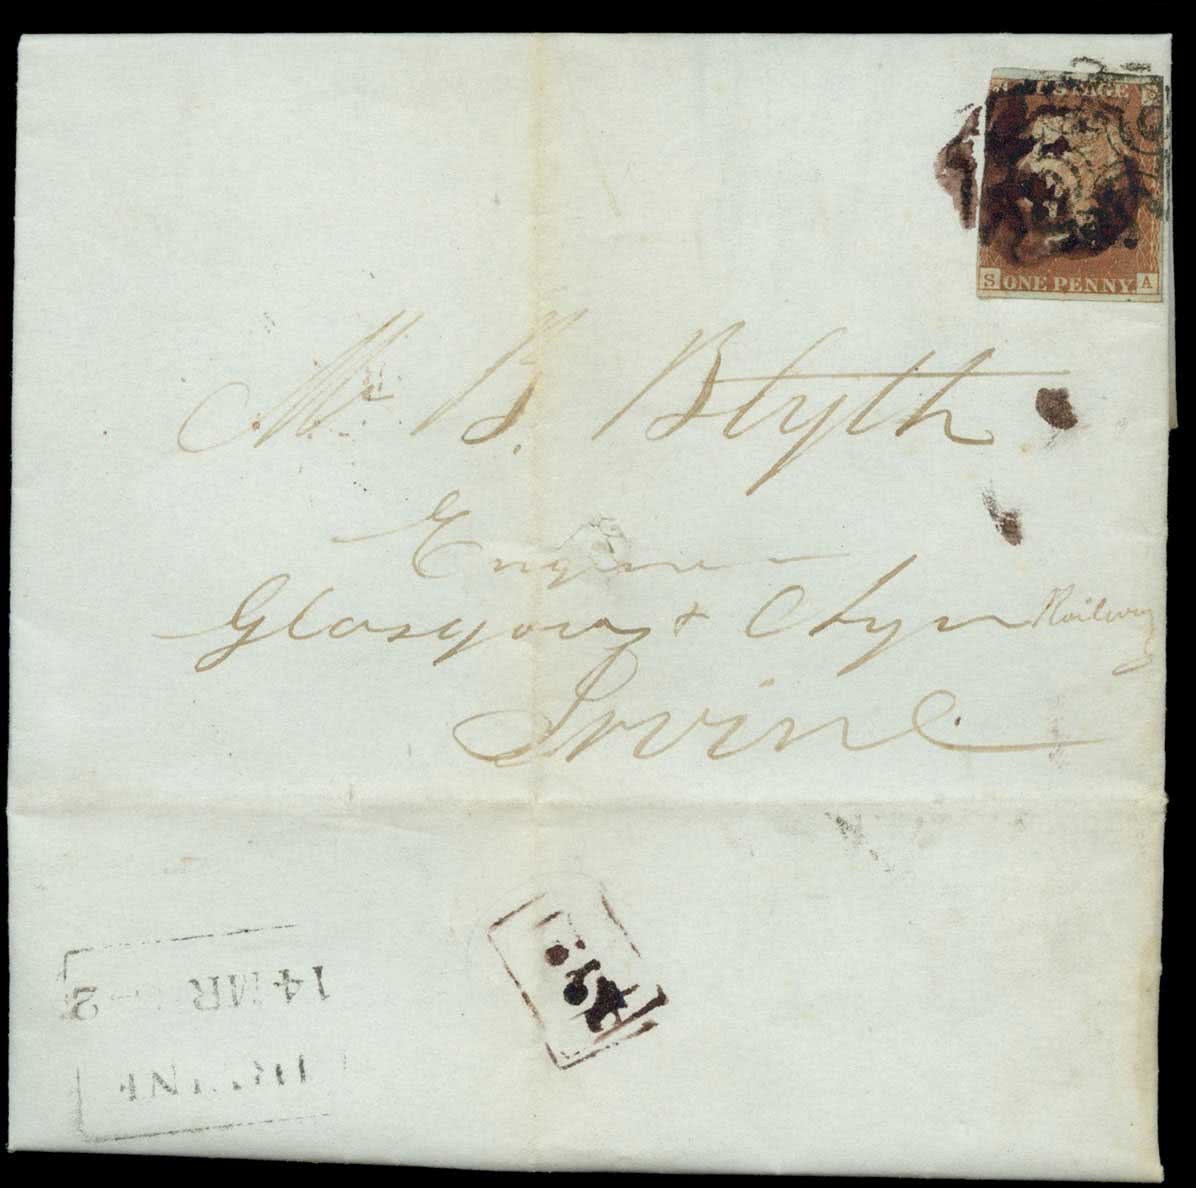 POSTAGE
S ONE PENNY. A
Mr B. Blyth
Engine
Glasgow & Ayr Railway
Irvine
14 MR 2
IRVINE